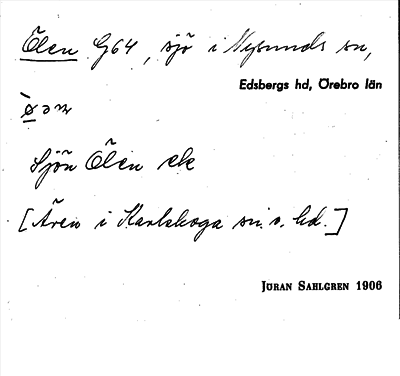 Ölen G64, sjö i Nysunds sn,
Edsbergs hd, Örebro län
Sjön Ölen ek
[Ären i Karlskoga sn. o. hd.]
JÖRAN SAHLGREN 1906